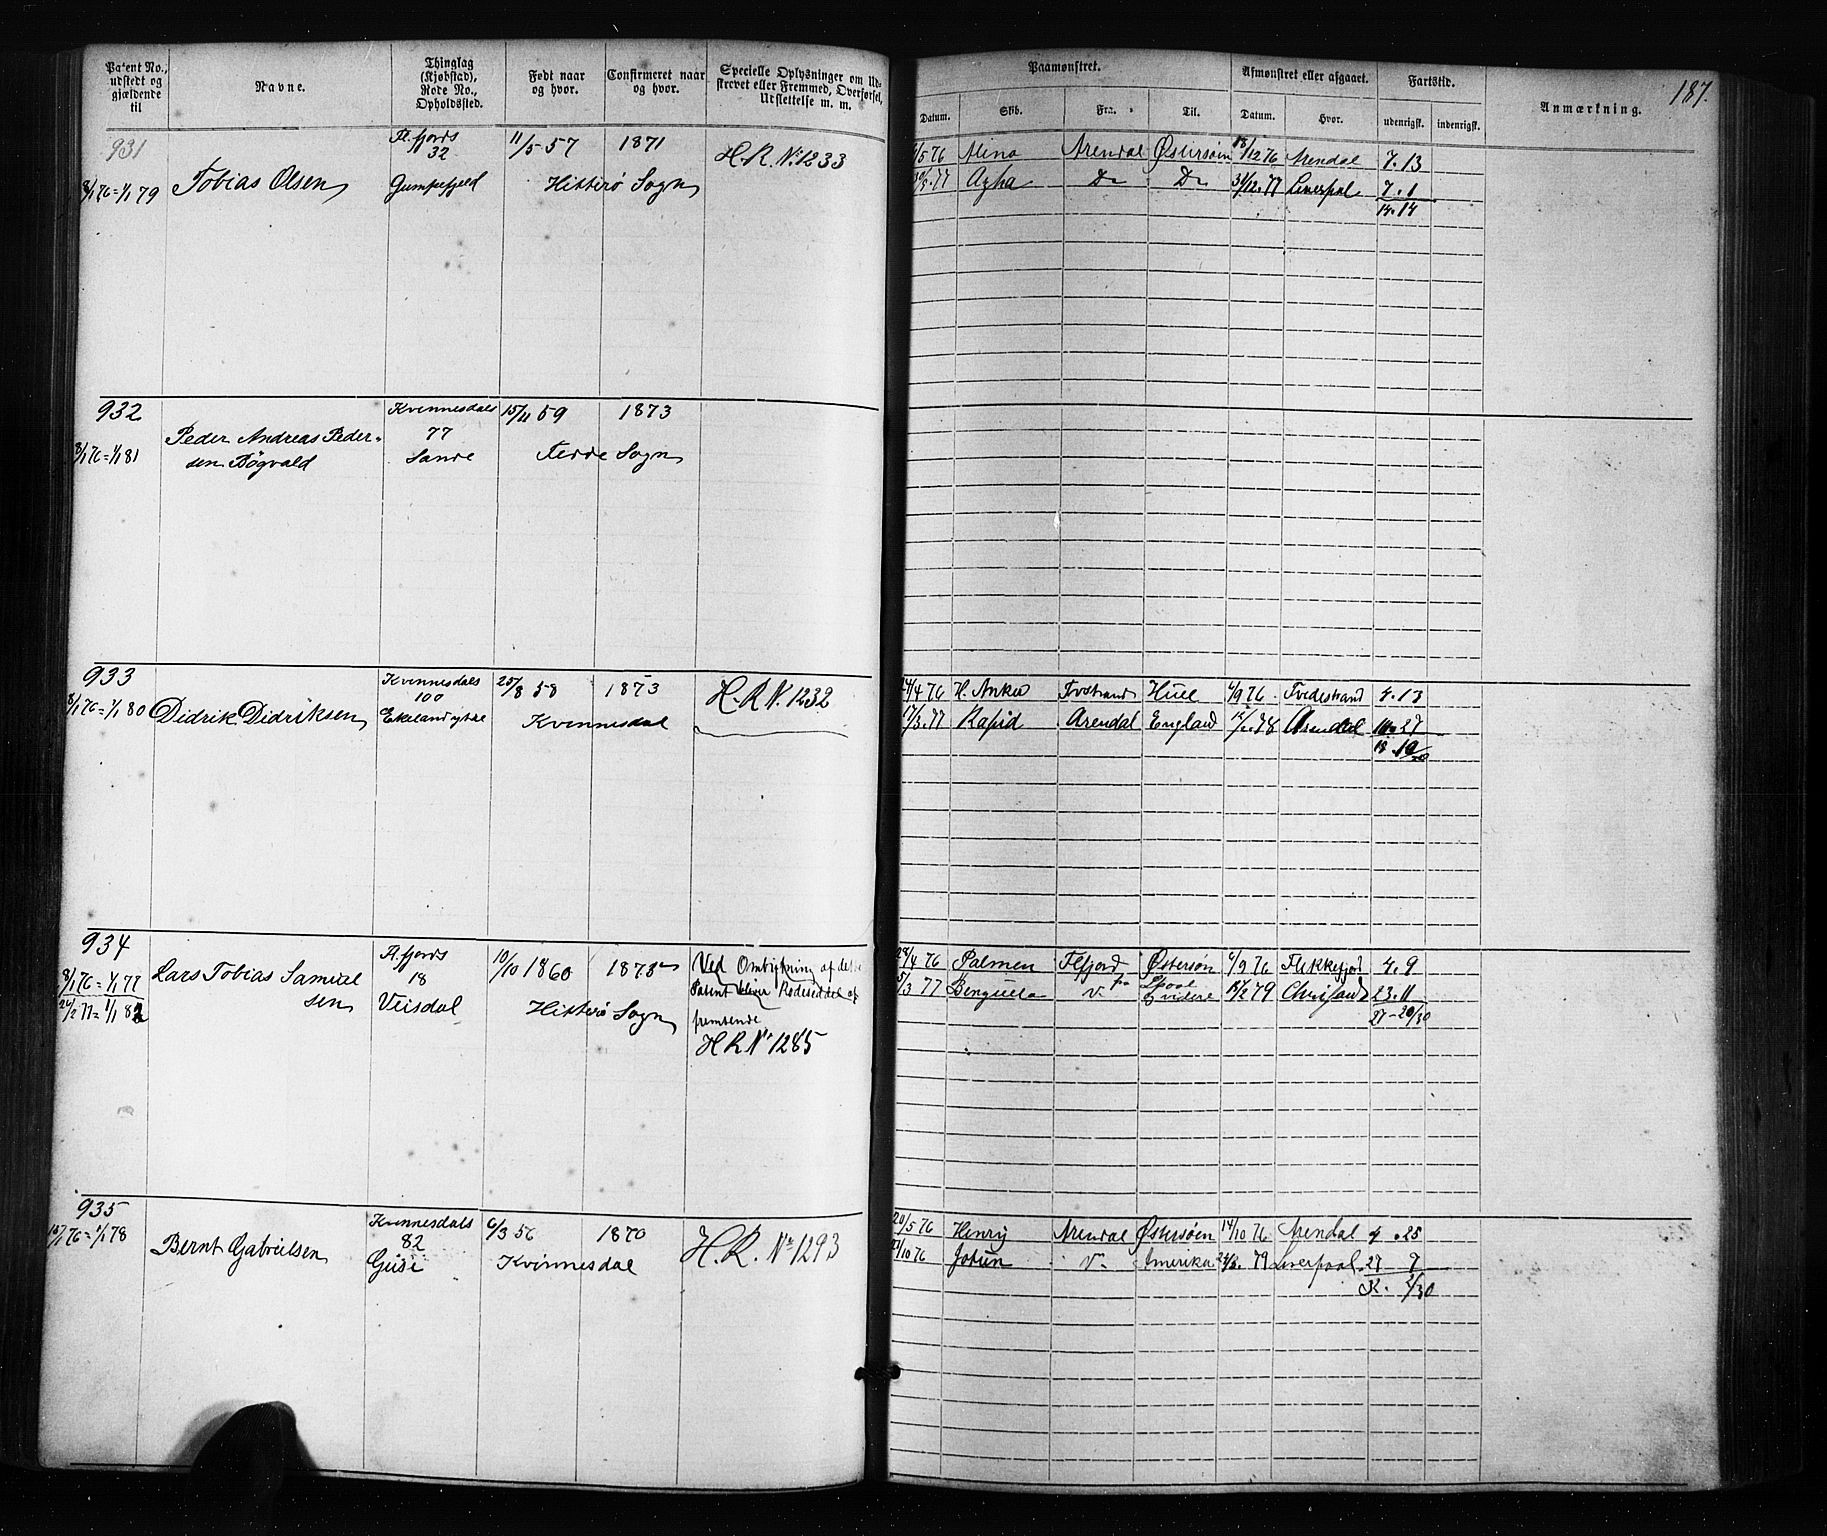 187.
Patent No., udstedt og gjældende til
Navne.
Thinglag (Kjøbstad), Rode No., Opholdssted.
Født naar og hvor.
Confirmeret naar og hvor.
Specielle Oplysninger om Udskrevet eller Fremmed, Overførsel, Udslettelse m. m.
Paamønstret.
Datum. Skib. Fra. Til.
Afmønstret eller afgaaet.
Datum. Hvor.
Fartstid.
udenrigsk. indenrigsk.
Anmærkning.
931
8/1 76 = 1/1 79
Tobias Olsen
Fl.fjords
32
Gumpefjeld
11/5 57 1871
Hitterø Sogn
H.R. No. 1233
/5 76 Alina Arendal Østersøen 18/12 76 Arendal 7. 13
77 Dr Dr 31/12. 77 Liverpol 7. 1
14. 14
932
8/1 76 = 1/1 81
Peder Andreas Peder-
sen Bøgvald
Kvinnesdals
77
Sande
15/11 59 1873
Sogn
933
8/1 76 = 1/1 80
Didrik Didriksen
Kvinnesdals
100
25/8 58 1873
Kvinnesdal
H.R N. 1232
24/4 76 H. Anker Hull 4/9 76 Tvedestrand 4. 13
17/3. 77 Rapid Arendal England 78 Arendal 27
18. 10/30
934
8/1 76 = 1/1 77
24/2 77 = 1/1 82
Lars Tobias Samuel
sen
Fl.fjords
18
Veisdal
10/10 1860 1873
Hitterø Sogn
Ved Ombytning af dette
Patent Rodeseddel at
fremsende
H R No 1285
28/4 76 Palmen Flfjord Østersøn 6/9 76 Flekkefjord 4. 9
5/3 77 Benguela 15/2 79 23. 11
27 - 20/30
935
13/1 76 = 1/1 78
Bernt Gabrielsen
Kvinnesdals
82
6/3 56 1870
Kvinnesdal
H. R. No 1293
20/5 76 Henry Arendal Østersøen 14/10 76 Arendal 4. 25
/10 76 Amerika 79 Liverpool 27 7
2/30